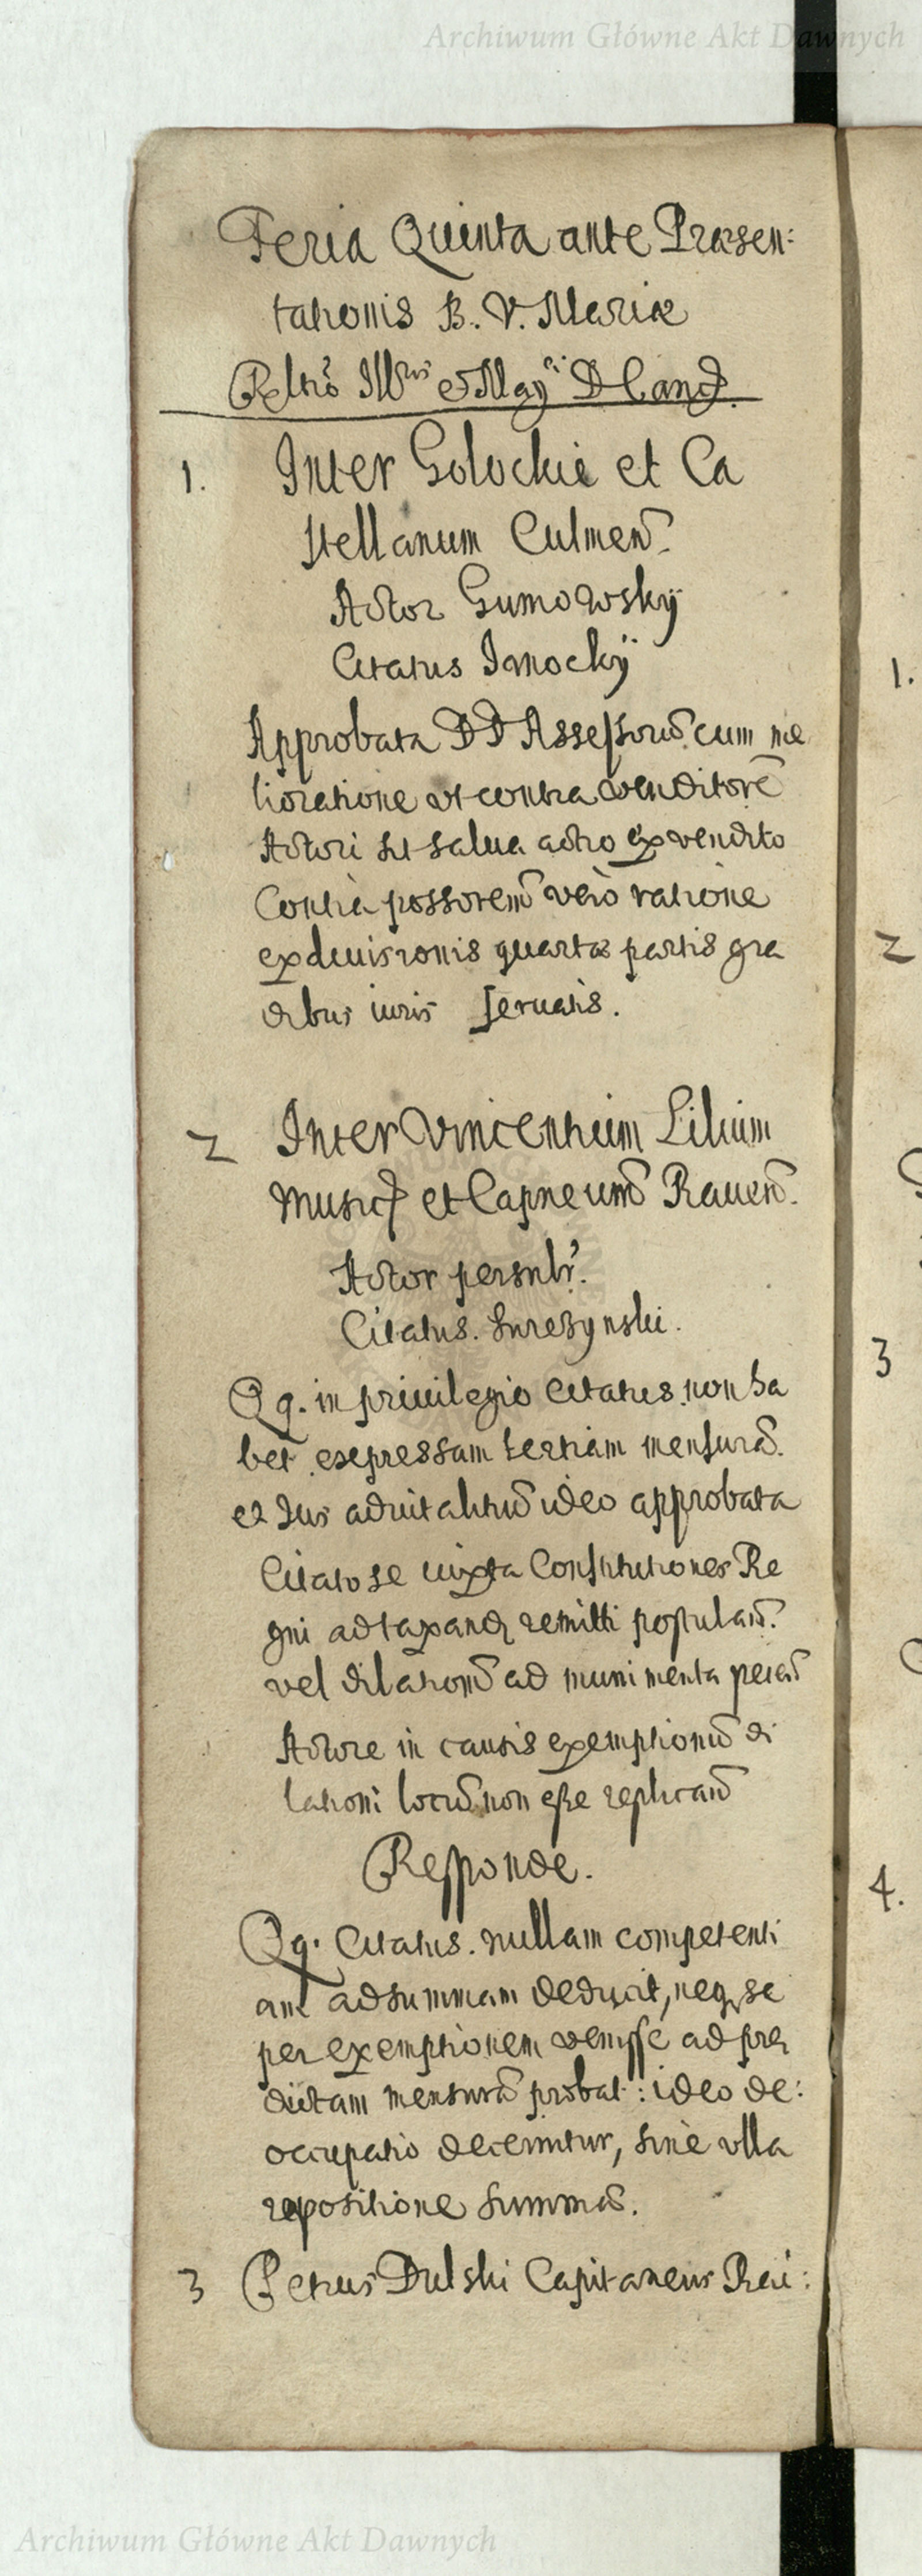 Archiwum Główne Akt Dawnych
Feria Quinta ante Præsen:
tationis B. V. Mariæ
Illris et Mag D Canc.
1. Inter Golockie et Ca
stellanum Culmen.
Actor Gumowsky
Citatus Janocky
Approbata DD Assessorū cum me
lioratione vt contra venditorē
Actori sit salua actio ex vendito
Contra possorem vero ratione
exdiuisionis quartæ partis gra
dibus iuris seruatis.
2 Inter Vincentium Lilium
Music et Capneum Rauen.
Actor personlr.
Citatus.
Qq. in priuilegio Citatus non ha
bet expressam tertiam mensurā.
et Jus aduitalitiū ideo approbata
Citato se iuxta Constitutiones Re
gni ad taxand remitti postulan.
vel dilationē ad munimenta petan
Actore in causis exemptionū di
lationi locū non esse replican
Responde.
Qq. Citatus. nullam competenti
am ad summam deducit, neq se
per exemptionem venisse ad præ
dictam mensurā probat: ideo de:
occupatio decernitur, sine vlla
repositione summæ.
3 Petrus Dulski Capitaneus Rai:
1.
2
3
4.
Archiwum Główne Akt Dawnych